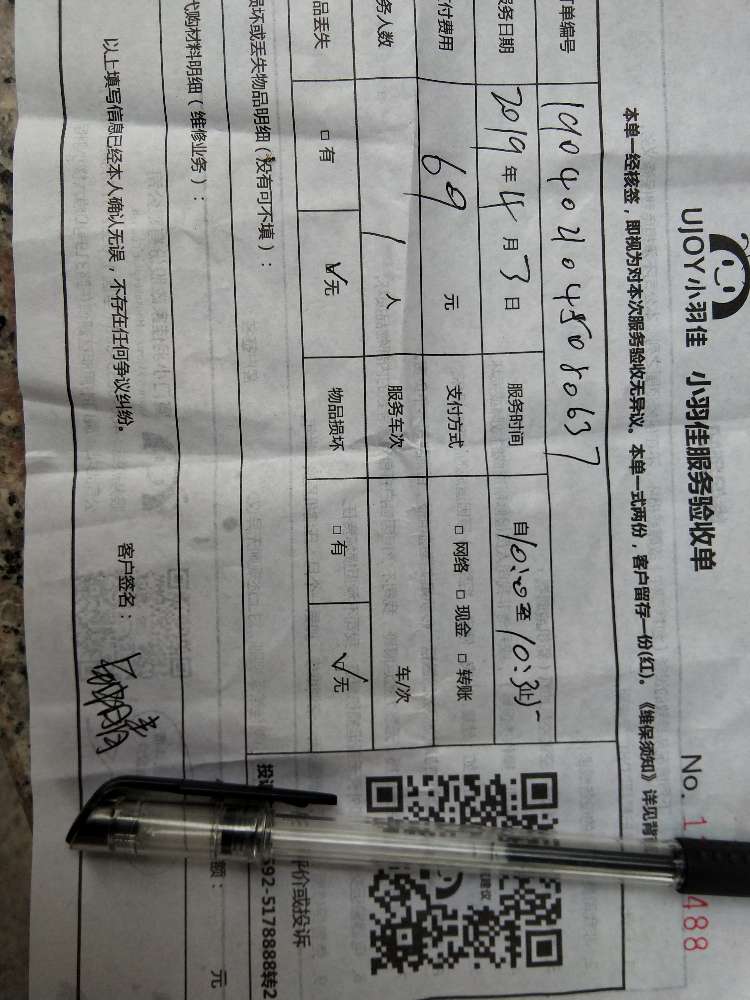 UJOY小羽佳 小羽佳服务验收单
No. 1 488
本单一经核签，即视为对本次服务验收无异议。本单一式两份，客户留存一份(红)。《维保须知》详见背
订单编号
服务日期 2019年4月3日 服务时间
付费用 69 元 支付方式 □网络 □现金 □转账
务人数 1 人 服务车次 车/次
品丢失 □有 ☑无 物品损坏 □有 ☑无
损坏或丢失物品明细（没有可不填）：
代购材料明细（维修业务）：
额： 元
以上填写信息已经本人确认无误，不存在任何争议纠纷。 客户签名：
评价或投诉
投 592-5178888转2